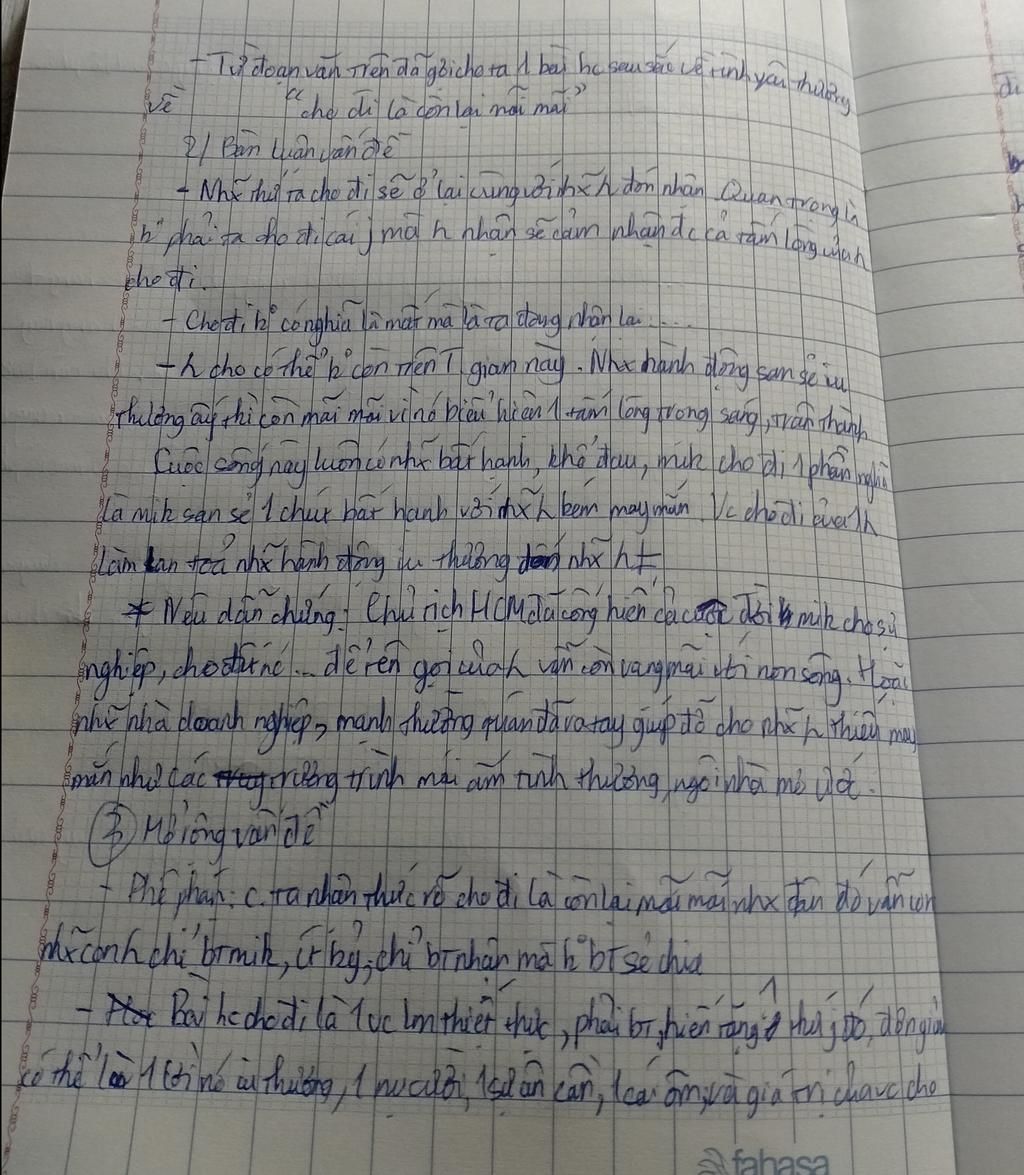 - Từ đoạn văn trên đã gợi cho ta 1 bài hc sâu sắc về tình yêu thương
về "cho đi là còn lại mãi mãi"
2/ Bàn luận vấn đề
- Nhx thứ ta cho đi sẽ ở lại cùng với nhx h đón nhận. Quan trọng là
k° phải ta cho đi cái j mà h nhận sẽ cảm nhận đc cả tấm lòng của h
cho đi.
- Cho đi k° có nghĩa là mất mà là ta đang nhận lại....
- h cho có thể k° còn trên T gian này. Nhx hành động san sẻ iu
thương ấy thì còn mãi mãi vì nó biểu hiện 1 tấm lòng trong sáng, trân thành
Cuộc sống này luôn có nhx bất hạnh, khổ đau, mik cho đi 1 phần nghĩa
là mik san sẻ 1 chút bất hạnh với nhx h kém may mắn. Vc cho đi của 1 h
làm lan toả nhx hành động iu thương nhx h ≠
* Nêu dẫn chứng: Chủ tịch HCM đã cống hiến cả đời mik cho sự
nghiệp, cho đất nc ... để tên gọi của h vẫn còn vang mãi với non sông. Hoặc
như nhà doanh nghiệp, mạnh thường quân đã ra tay giúp đỡ cho nhx h thiếu may
mắn như các trương trình mái ấm tình thương, ngôi nhà mơ ước.
③ Mở rộng vấn đề
- Phê phán: c. ta nhận thức rõ cho đi là còn lại mãi mãi nhx đâu đó vẫn còn
nhx con h chỉ bt mik, ít kỷ, chỉ bt nhận mà k° bt sẻ chia
- Bài hc cho đi là 1 vc lm thiết thực, phải bt, hiến tặng 1 thứ j đó, đơn giản
có thể là 1 lời nói iu thương, 1 nụ cười, 1 sự ân cần, 1 cái ôm, và giá trị của vc cho
fahasa